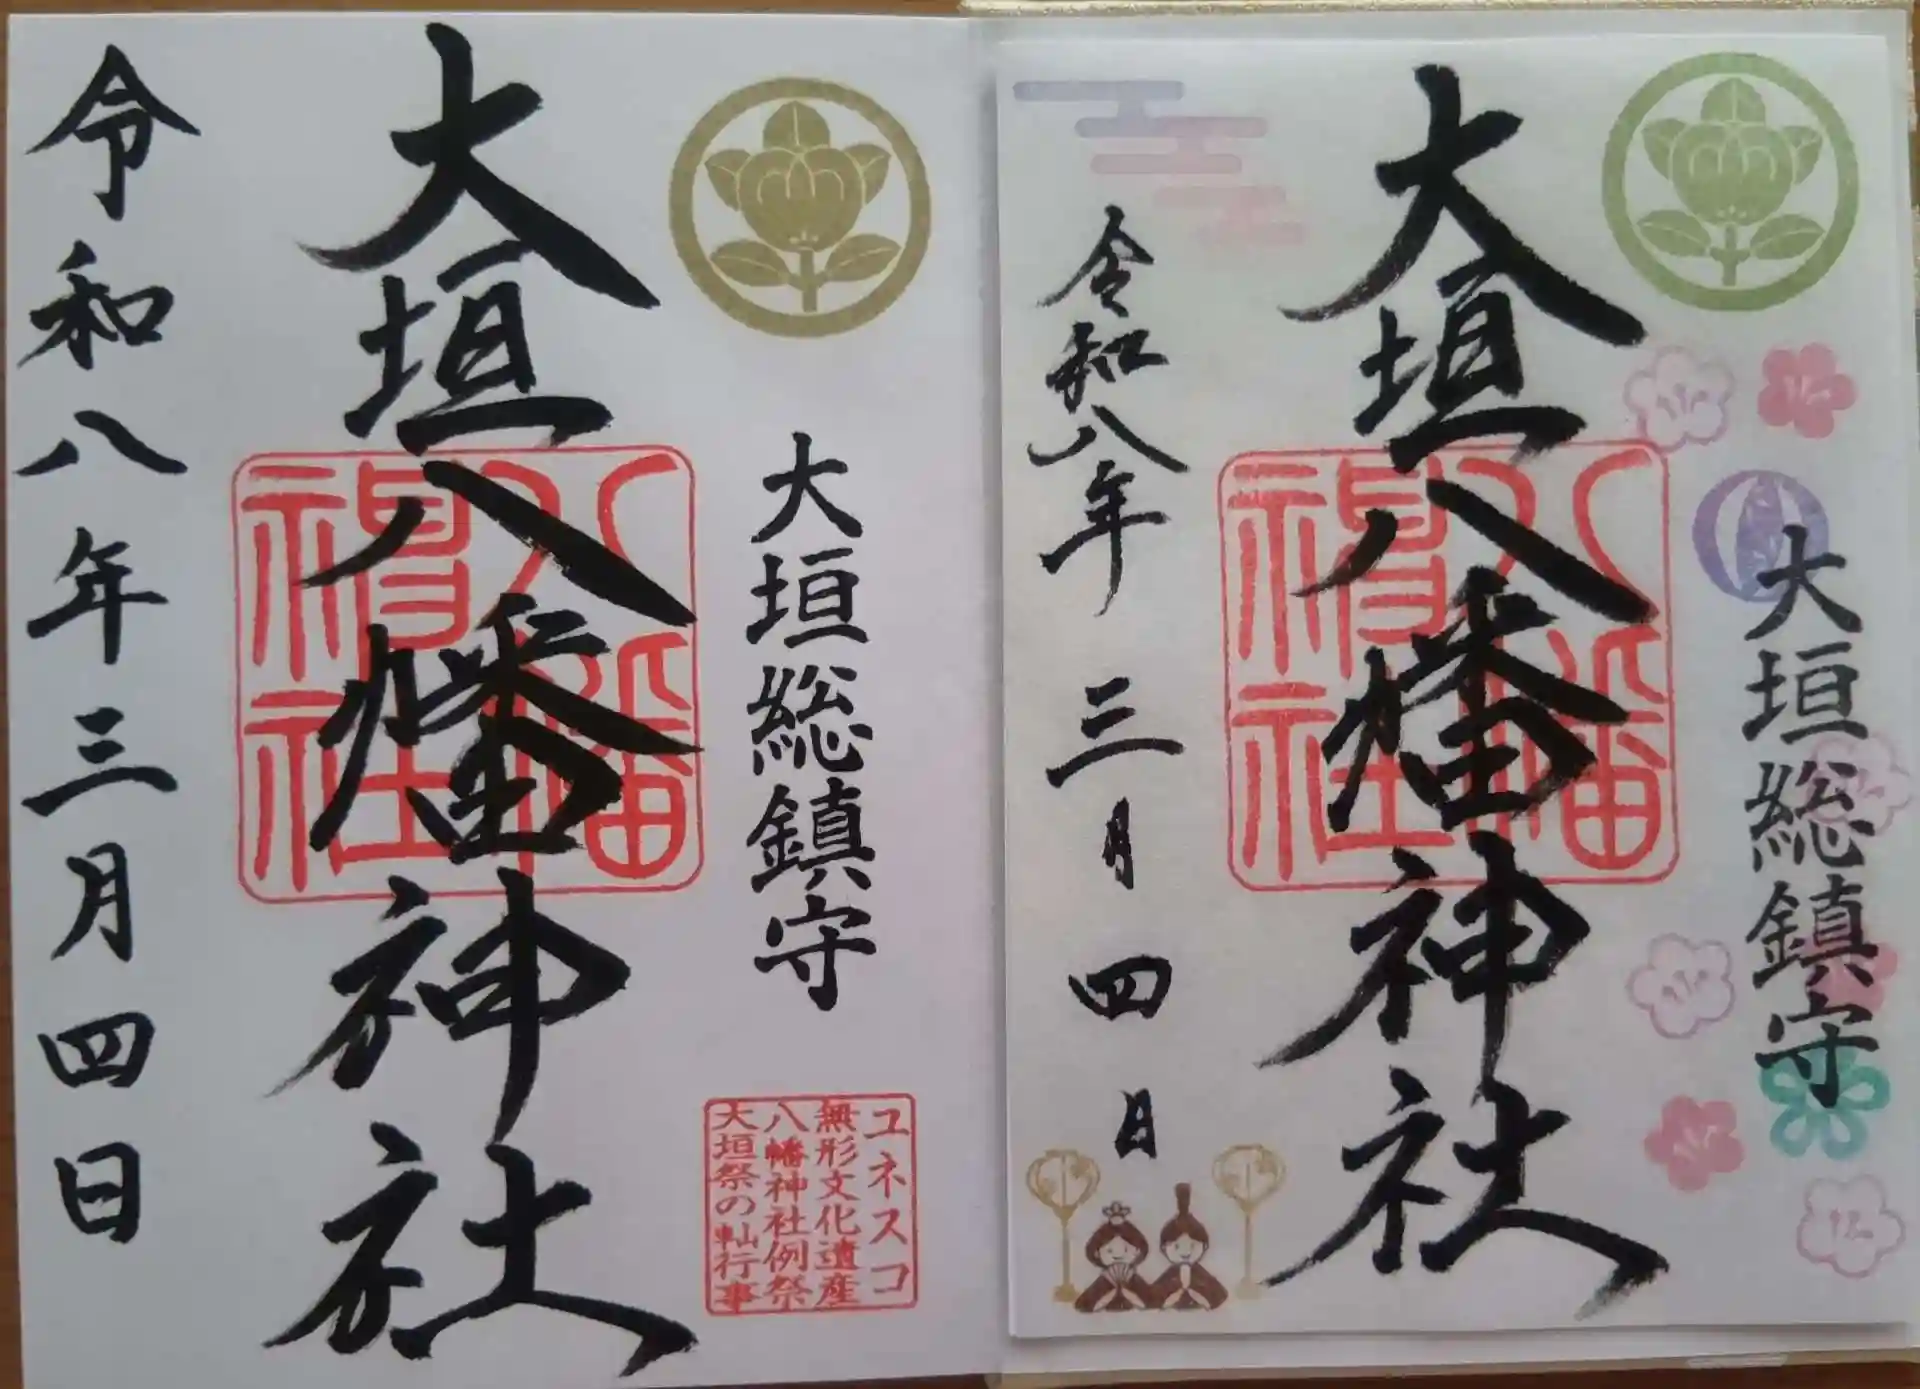 大垣総鎮守
大垣八幡神社
八幡
神社
令和八年三月四日
大垣総鎮守
ユネスコ
無形文化遺産
八幡神社例祭
大垣祭の軕行事
大垣八幡神社
八幡
神社
令和八年三月四日